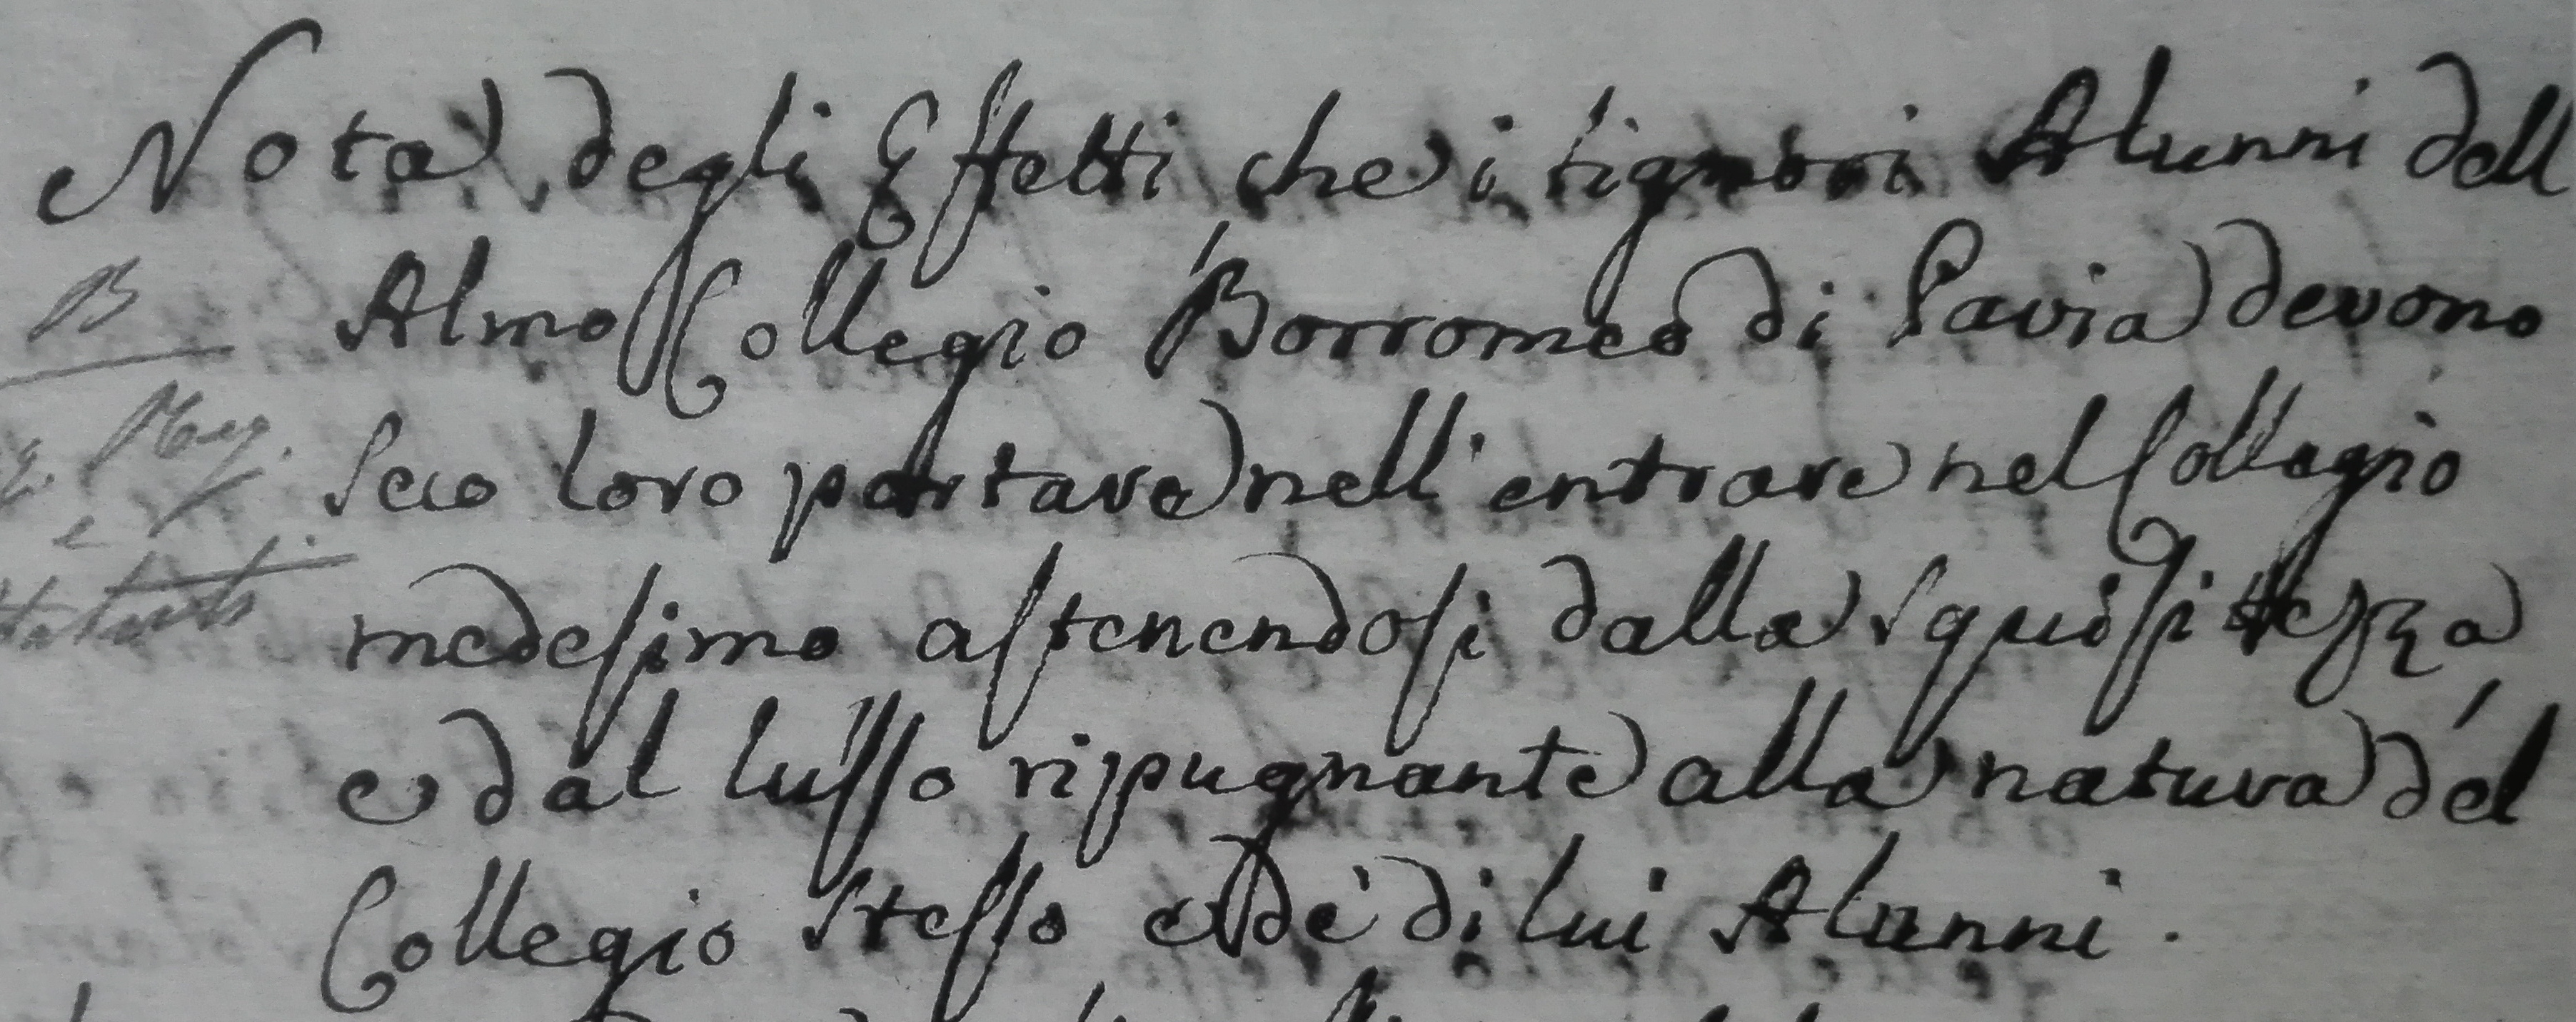 Nota degli Effetti che i signori Alunni dell
B
Almo Collegio Borromeo di Pavia devono
Seco loro portare nell' entrare nel Collegio
e
medesimo astenendosi dalla squisitezza
e dal lusso ripugnante alla natura del
Collegio Stesso e de' di lui Alunni.